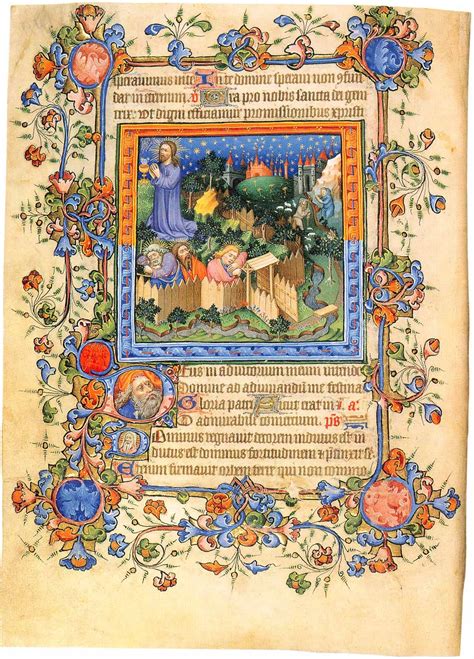 speravimus in te In te domine speravi non confun
dar in eternum. v Ora pro nobis sancta dei geni
trix: vt digni efficiamur promissionibus xpristi
Deus in adiutorium meum intende
Domine ad adiuvandum me festina
Gloria patri Sicut erat in. a.
O admirabile comercium. ps
Dominus regnavit decorem indutus est in
dutus est dominus fortitudinem et precinxit se
Etenim firmavit orbem terre qui non commo